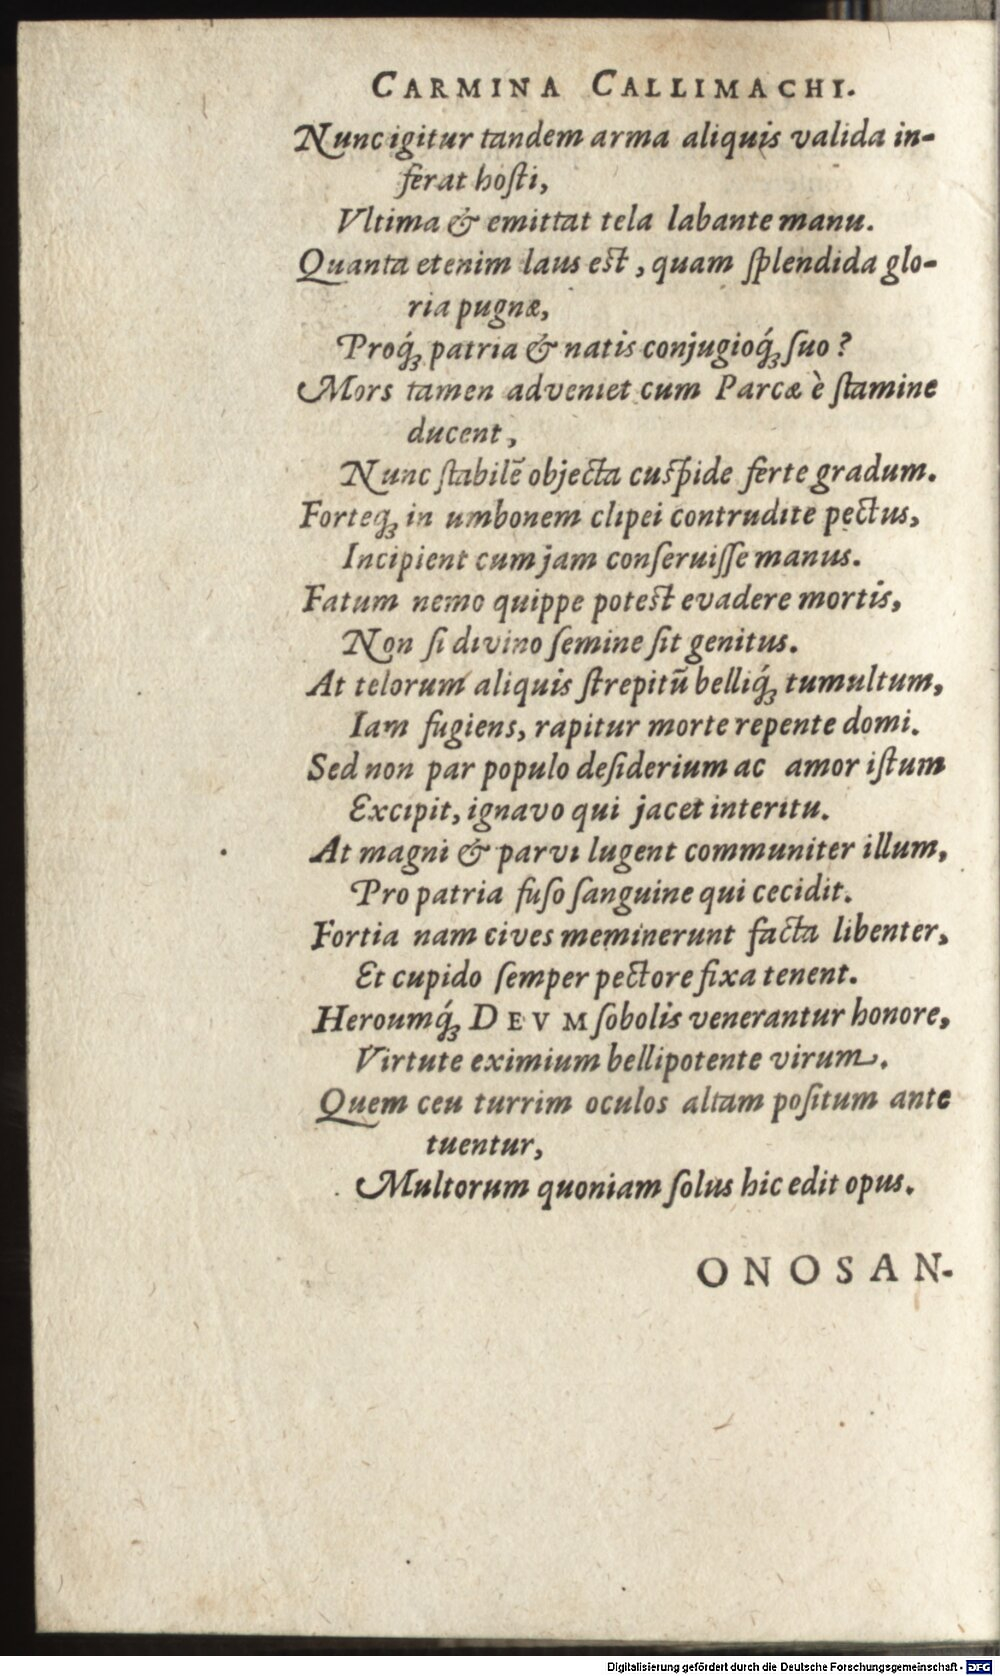 CARMINA CALLIMACHI.
Nunc igitur tandem arma aliquis valida in-
ferat hoſti,
Vltima & emittat tela labante manu.
Quanta etenim laus est, quam ſplendida glo-
ria pugnæ,
Proq́ꝫ patria & natis conjugioq́ꝫ ſuo?
Mors tamen adveniet cum Parcæ è ſtamine
ducent,
Nunc ſtabilē objecta cuſpide ferte gradum.
Forteqꝫ in umbonem clipei contrudite pectus,
Incipient cum jam conſeruiſſe manus.
Fatum nemo quippe potest evadere mortis,
Non ſi divino ſemine ſit genitus.
At telorum aliquis ſtrepitū belliq́ꝫ tumultum,
Iam fugiens, rapitur morte repente domi.
Sed non par populo deſiderium ac amor iſtum
Excipit, ignavo qui jacet interitu.
At magni & parvi lugent communiter illum,
Pro patria fuſo ſanguine qui cecidit.
Fortia nam cives meminerunt facta libenter,
Et cupido ſemper pectore fixa tenent.
Heroumq́ꝫ DEVM ſobolis venerantur honore,
Virtute eximium bellipotente virum.
Quem ceu turrim oculos altam poſitum ante
tuentur,
Multorum quoniam ſolus hic edit opus.
ONOSAN-
Digitalisierung gefördert durch die Deutsche Forschungsgemeinschaft - DFG